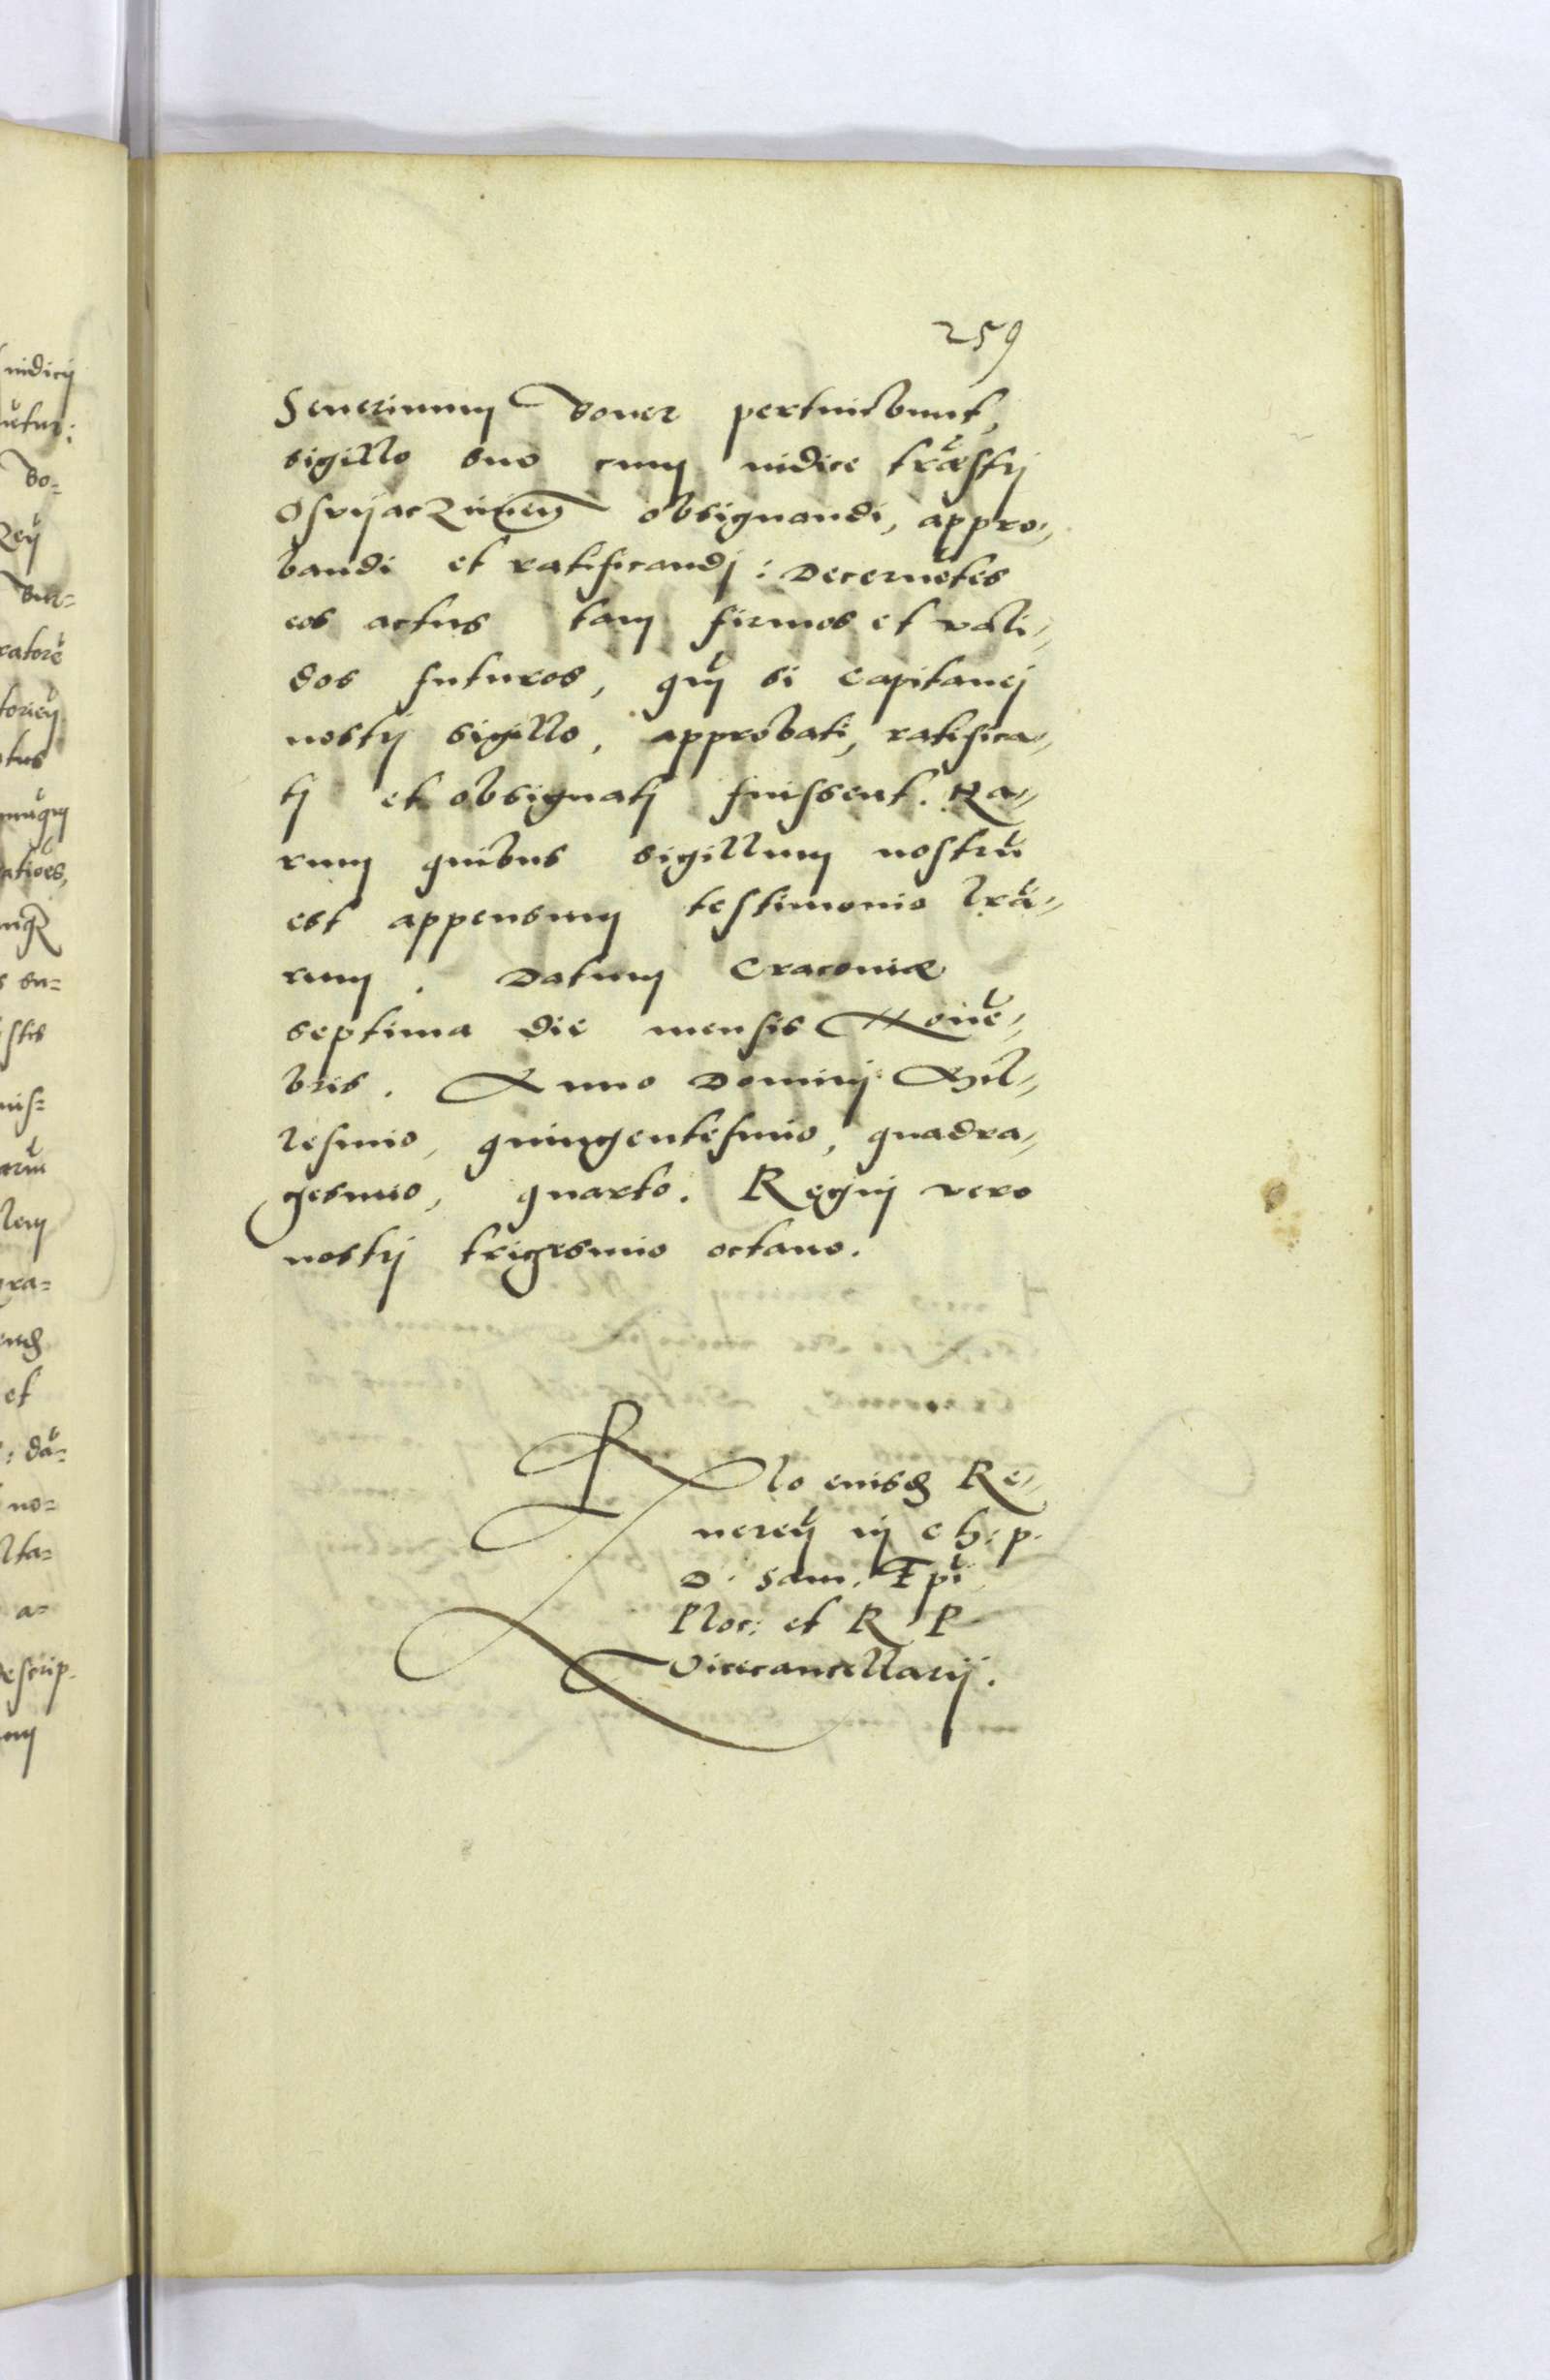 259
Seuerinum Boner pertinebunt,
sigillo suo cum iudice trrestrj
Osvijaczimen obsignandi, appro„
bandi et ratificandj: Decernētes
eos actus tam firmos et vali„
dos futuros, qm̄ si Capitanej
nostrj sigillo, approbati, ratifica„
tj et obsignatj fuissent. Ha„
rum quibus sigillum nostrū
est appensum testimonio lrā„
rum. Datum Cracouiæ
septima die mensis Nouē„
bris. Anno Dominj Mil„
lesimo, quingentesimo, quadra„
gesimo, quarto. Regni vero
nostrj trigesimo octauo.
Rlo eiusdem Re„
uereñ in Ch: p.
D. Sam. Epi
Ploc: et R P
Vicecancellarij.